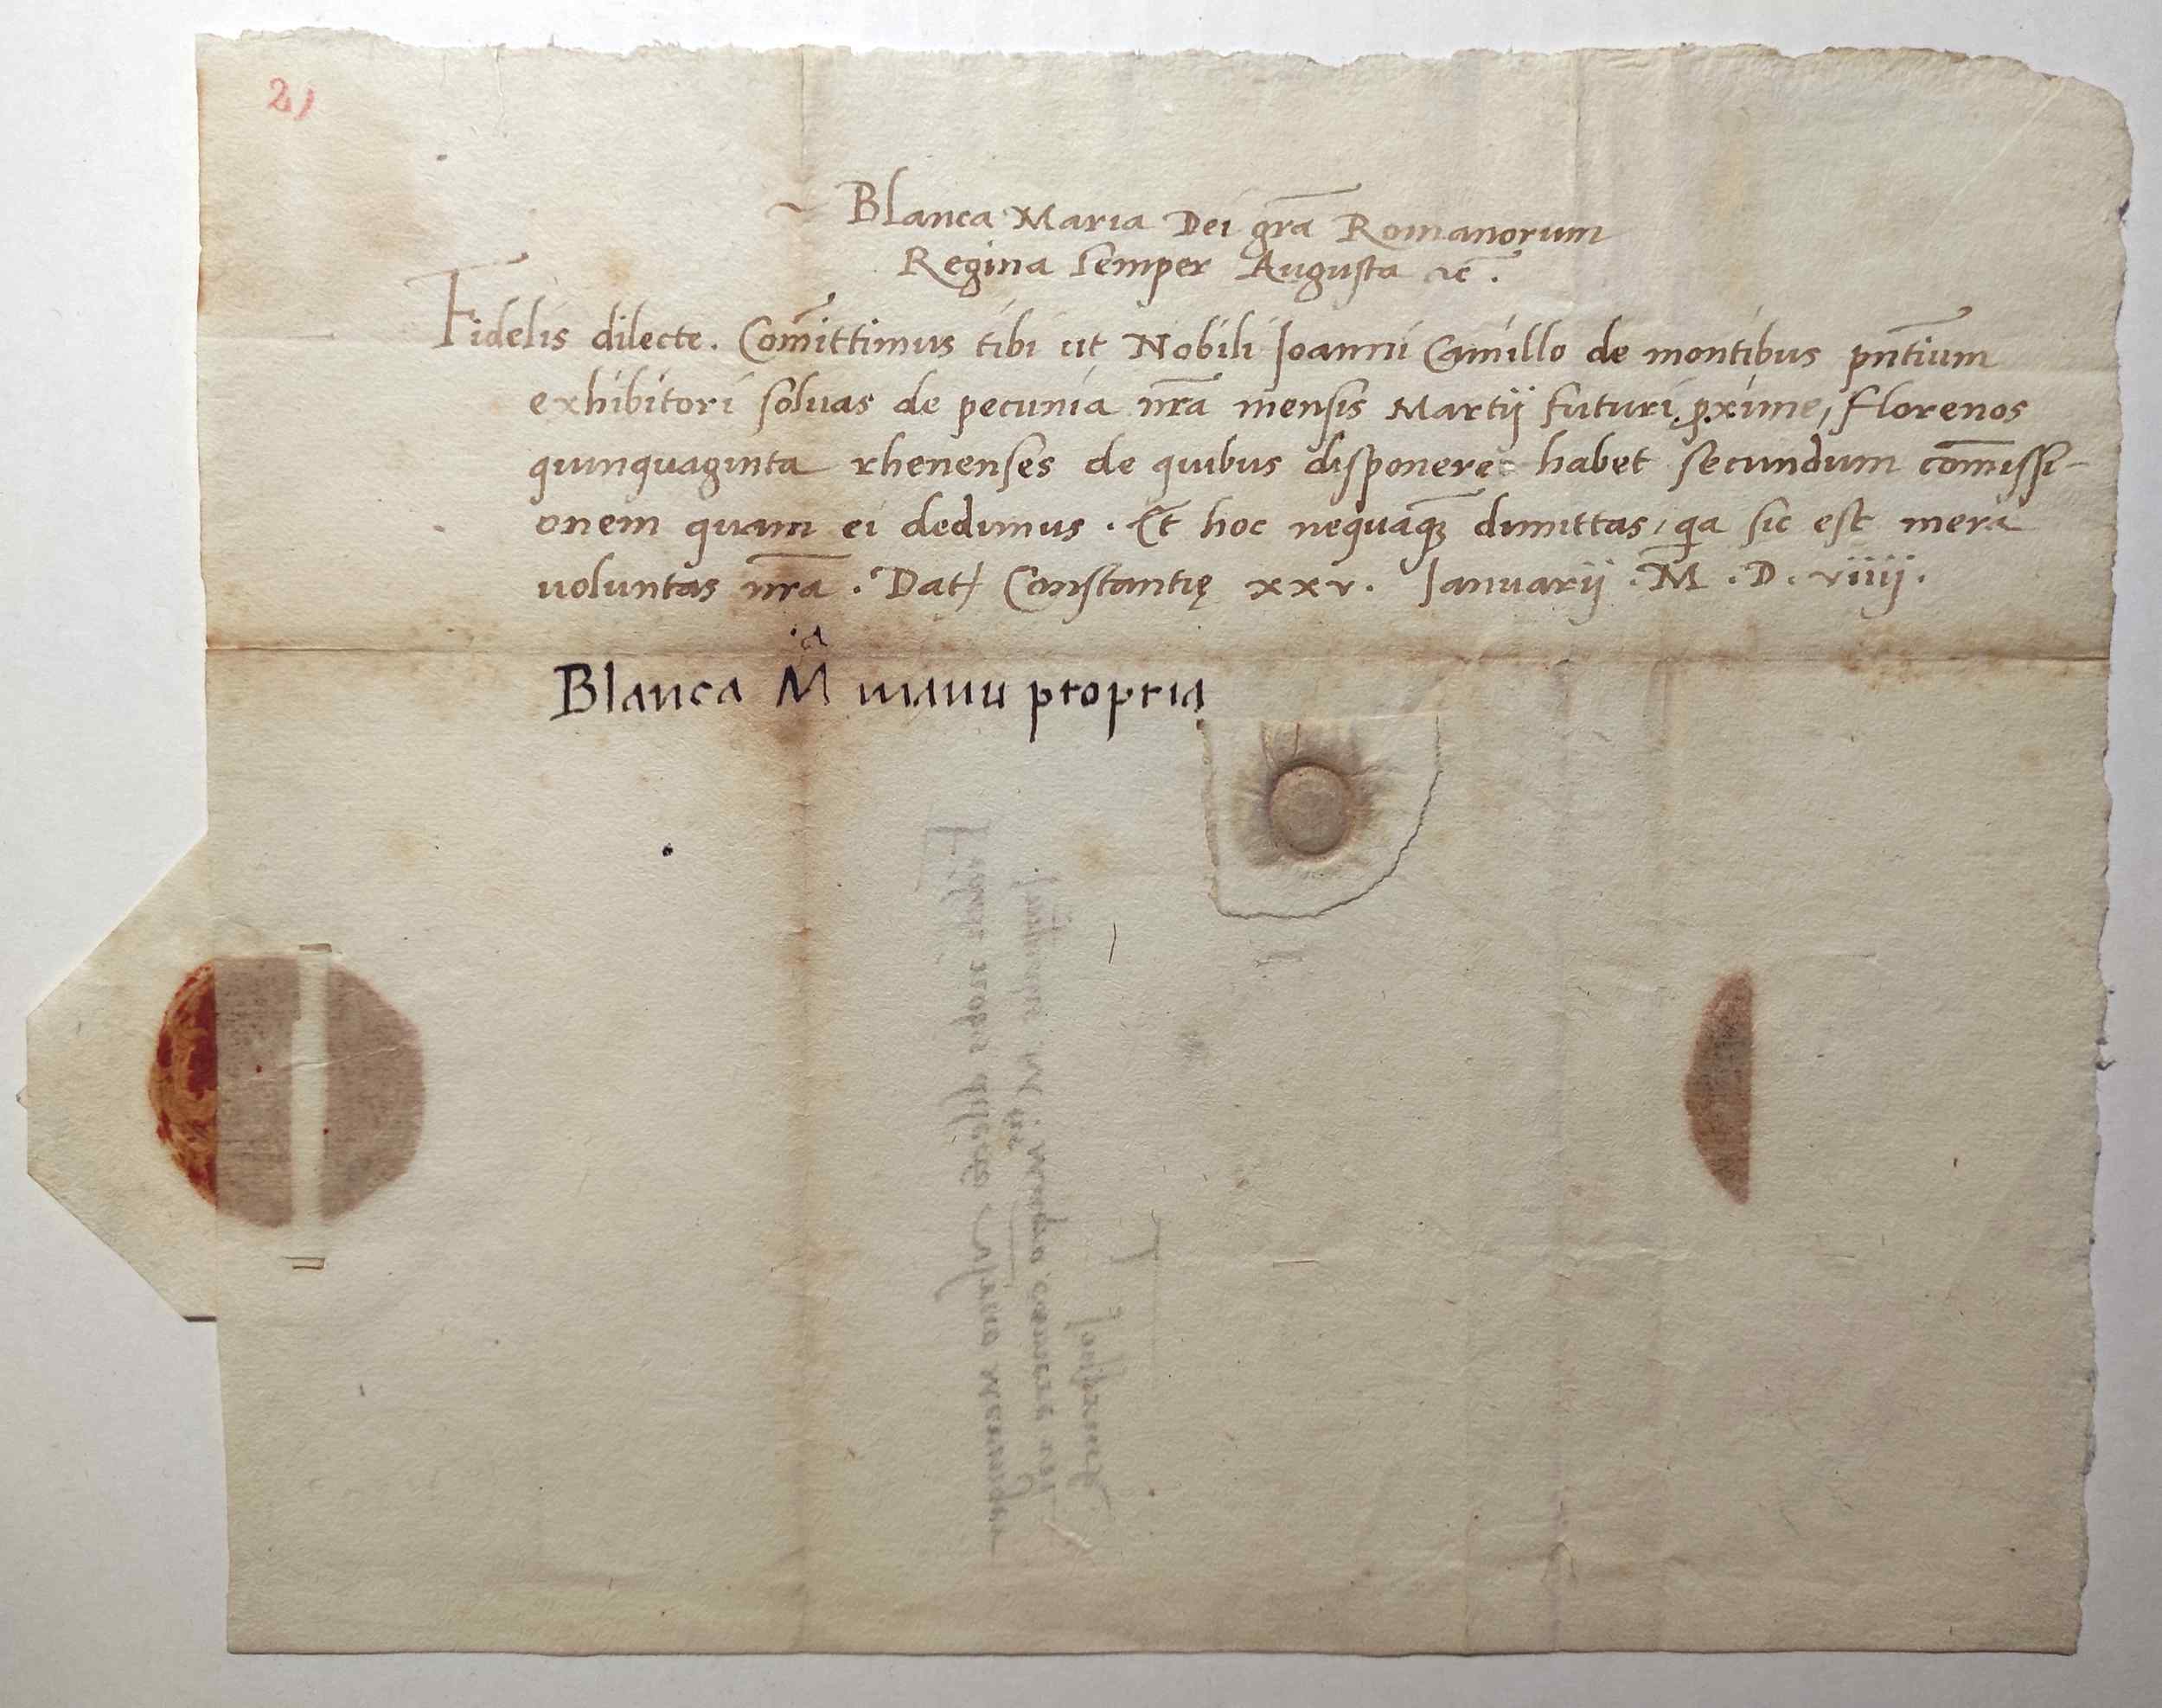 2)
~ Blanca Maria Dei gr̄a Romanorum
Regina semper Augusta ⁊c̄.
Fidelis dilecte. Com̄ittimus tibi ut Nobili Joanni Camillo de montibus pn̄tium
exhibitori soluas de pecunia nr̄a mensis Martij futuri ꝓxime, florenos
quinquaginta rhenenses de quibus disponere habet secundum com̄issi-
onem quam ei dedimus. Et hoc nequaqꝫ dimittas, qa sic est mera
uoluntas nr̄a. Dat Constantię xxv. Januarij. M. D. viiij.
Blanca Mᵃ manu propria